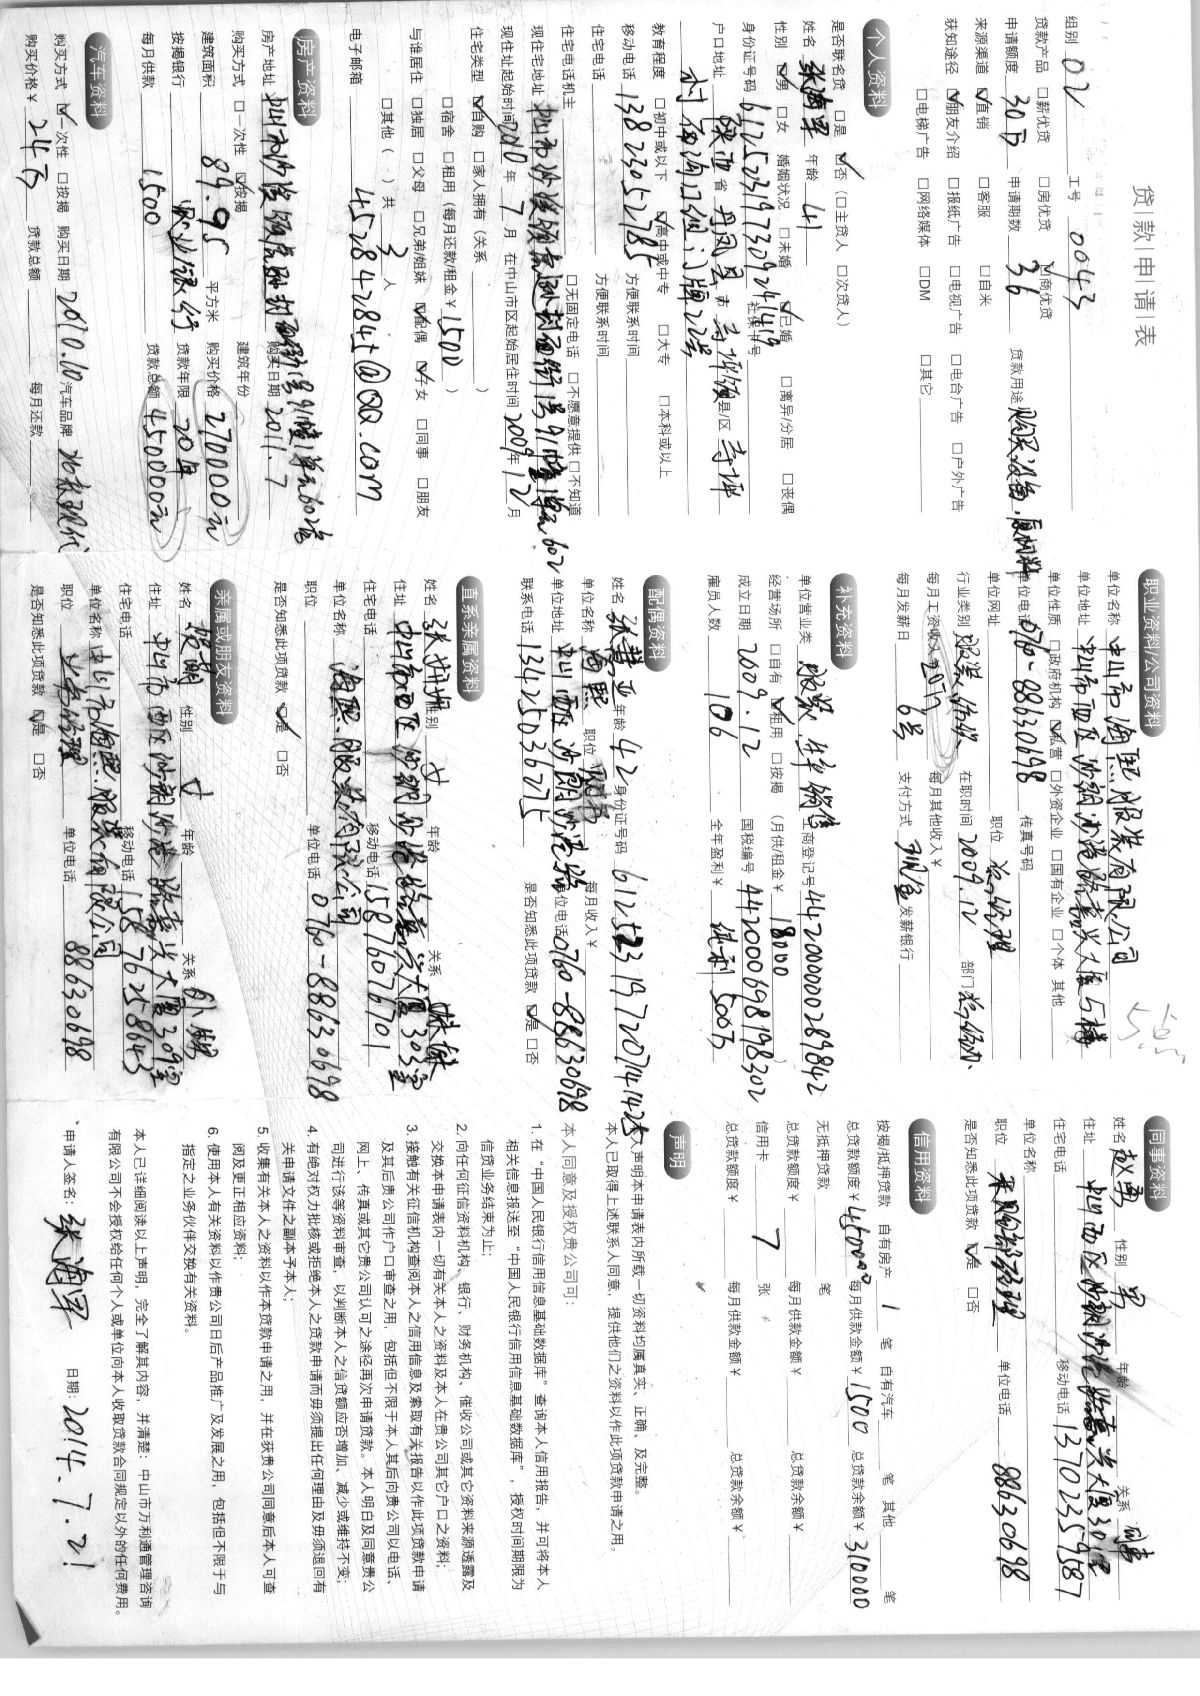 贷款申请表
组别 02 工号 0043
贷款产品 □薪优贷 □房优贷 ☑商优贷
申请额度 30万 申请期数 36 贷款用途 购买设备、原材料
来源渠道 ☑直销 □客服 □自来
获知途径 ☑朋友介绍 □报纸广告 □电视广告 □电台广告 □户外广告
□电梯广告 □网络媒体 □DM □其它
个人资料
是否联名贷 □是 ☑否 (□主贷人 □次贷人)
姓名 张海军 年龄 41
性别 ☑男 □女 婚姻状况 □未婚 ☑已婚 □离异/分居 □丧偶
身份证号码 612523197309241419 社保卡号
户口地址 陕西 省 丹凤县 市 寺坪镇 县/区 寺坪
村 门牌22号
教育程度 □初中或以下 ☑高中或中专 □大专 □本科或以上
移动电话 13823052785 方便联系时间
住宅电话 方便联系时间
住宅电话机主 □无固定电话 □不愿意提供 □不知道
现住宅地址 中山市沙溪镇 602
现住址起始时间 2010 年 7 月 在中山市区起始居住时间 2009 年 12 月
住宅类型 ☑自购 □家人拥有 (关系 )
□宿舍 □租用 (每月还款/租金¥ 1500 )
与谁居住 □独居 □父母 □兄弟/姐妹 ☑配偶 ☑子女 □同事 □朋友
□其他 ( ) 共 3 人
电子邮箱 45284284@QQ.com
房产资料
房产地址 中山市沙溪镇 602 购买日期 2011.7
购买方式 □一次性 ☑按揭 建筑年份
建筑面积 89.95 平方米 购买价格 270000元
按揭银行 农业银行 贷款年限 20年
每月供款 1500 贷款总额 450000元
汽车资料
购买方式 ☑一次性 □按揭 购买日期 2010.10 汽车品牌 北京现代
购买价格¥ 24万 贷款总额 每月还款
职业资料/公司资料
单位名称 中山市海熙服装有限公司
单位地址 中山市西区沙朗沙港路嘉兴大厦5楼
单位性质 □政府机构 ☑私营 □外资企业 □国有企业 □个体 其他
单位电话 0760-88630698 传真号码
单位网址 职位 总经理
行业类别 服装 在职时间 2009.12 部门 总经办
每月工资收入¥ 20万 每月其他收入¥
每月发薪日 6号 支付方式 现金 发薪银行
补充资料
单位营业类 服装生产销售 工商登记号 442000000289842
经营场所 □自有 ☑租用 □按揭 (月供/租金¥ 18000 )
成立日期 2009.12 国税编号 442000698198302
雇员人数 106 全年盈利¥ 纯利500万
配偶资料
姓名 张慧亚 年龄 42 身份证号码 612523197207141425
单位名称 海熙 职位 每月收入¥
单位地址 中山西区沙朗沙港路 单位电话 0760-88630698
联系电话 13425036775 是否知悉此项贷款 ☑是 □否
直系亲属资料
姓名 张姗姗 性别 女 年龄 关系
住址 中山市西区沙朗沙港路嘉兴大厦303室
住宅电话 移动电话 15876076701
单位名称 海熙服装有限公司
职位 单位电话 0760-88630698
是否知悉此项贷款 ☑是 □否
亲属或朋友资料
姓名 性别 女 年龄 关系
住址 中山市西区沙朗沙港路嘉兴大厦309室
住宅电话 移动电话 15876258643
单位名称 中山市海熙服装有限公司
职位 单位电话 88630698
是否知悉此项贷款 ☑是 □否
同事资料
姓名 赵勇 性别 男 年龄 关系 同事
住址 中山西区沙朗沙港路嘉兴大厦301室
住宅电话 移动电话 13702359587
单位名称
职位 采购部经理 单位电话 88630698
是否知悉此项贷款 ☑是 □否
信用资料
按揭/抵押贷款 自有房产 1 笔 自有汽车 笔 其他 笔
总贷款额度¥ 450000 每月供款金额¥ 1500 总贷款余额¥ 310000
无抵押贷款 笔
总贷款额度¥ 每月供款金额¥ 总贷款余额¥
信用卡 7 张
总贷款额度¥ 每月供款金额¥ 总贷款余额¥
声明
本人声明本申请表内所载一切资料均属真实、正确、及完整。
本人已取得上述联系人同意，提供他们之资料以作此项贷款申请之用。
本人同意及授权贵公司可：
1. 在“中国人民银行信用信息基础数据库”查询本人信用报告，并可将本人
相关信息报送至“中国人民银行信用信息基础数据库”，授权时间期限为
信贷业务结束为止；
2. 向任何征信资料机构、银行、财务机构、催收公司或其它资料来源透露及
交换本申请表内一切有关本人之资料及本人在贵公司其它户口之资料；
3. 接触有关征信机构查阅本人之信用信息及索取有关报告以作此项贷款申请
及其后贵公司作户口审查之用，包括但不限于本人其后向贵公司以电话、
网上，传真或其它贵公司认可之途径再次申请贷款。本人明白及同意贵公
司进行该等资料审查，以判断本人之信贷额应否增加、减少或维持不变；
4. 有绝对权力批核或拒绝本人之贷款申请而毋须提出任何理由及毋须退回有
关申请文件之副本予本人；
5. 收集有关本人之资料以作本贷款申请之用，并在获贵公司同意后本人可查
阅及更正相应资料；
6. 使用本人有关资料以作贵公司日后产品推广及发展之用，包括但不限于与
指定之业务伙伴交换有关资料。
本人已详细阅读以上声明，完全了解其内容，并清楚：中山市万利通管理咨询
有限公司不会授权给任何个人或单位向本人收取贷款合同规定以外的任何费用。
申请人签名：张海军 日期：2014.7.21